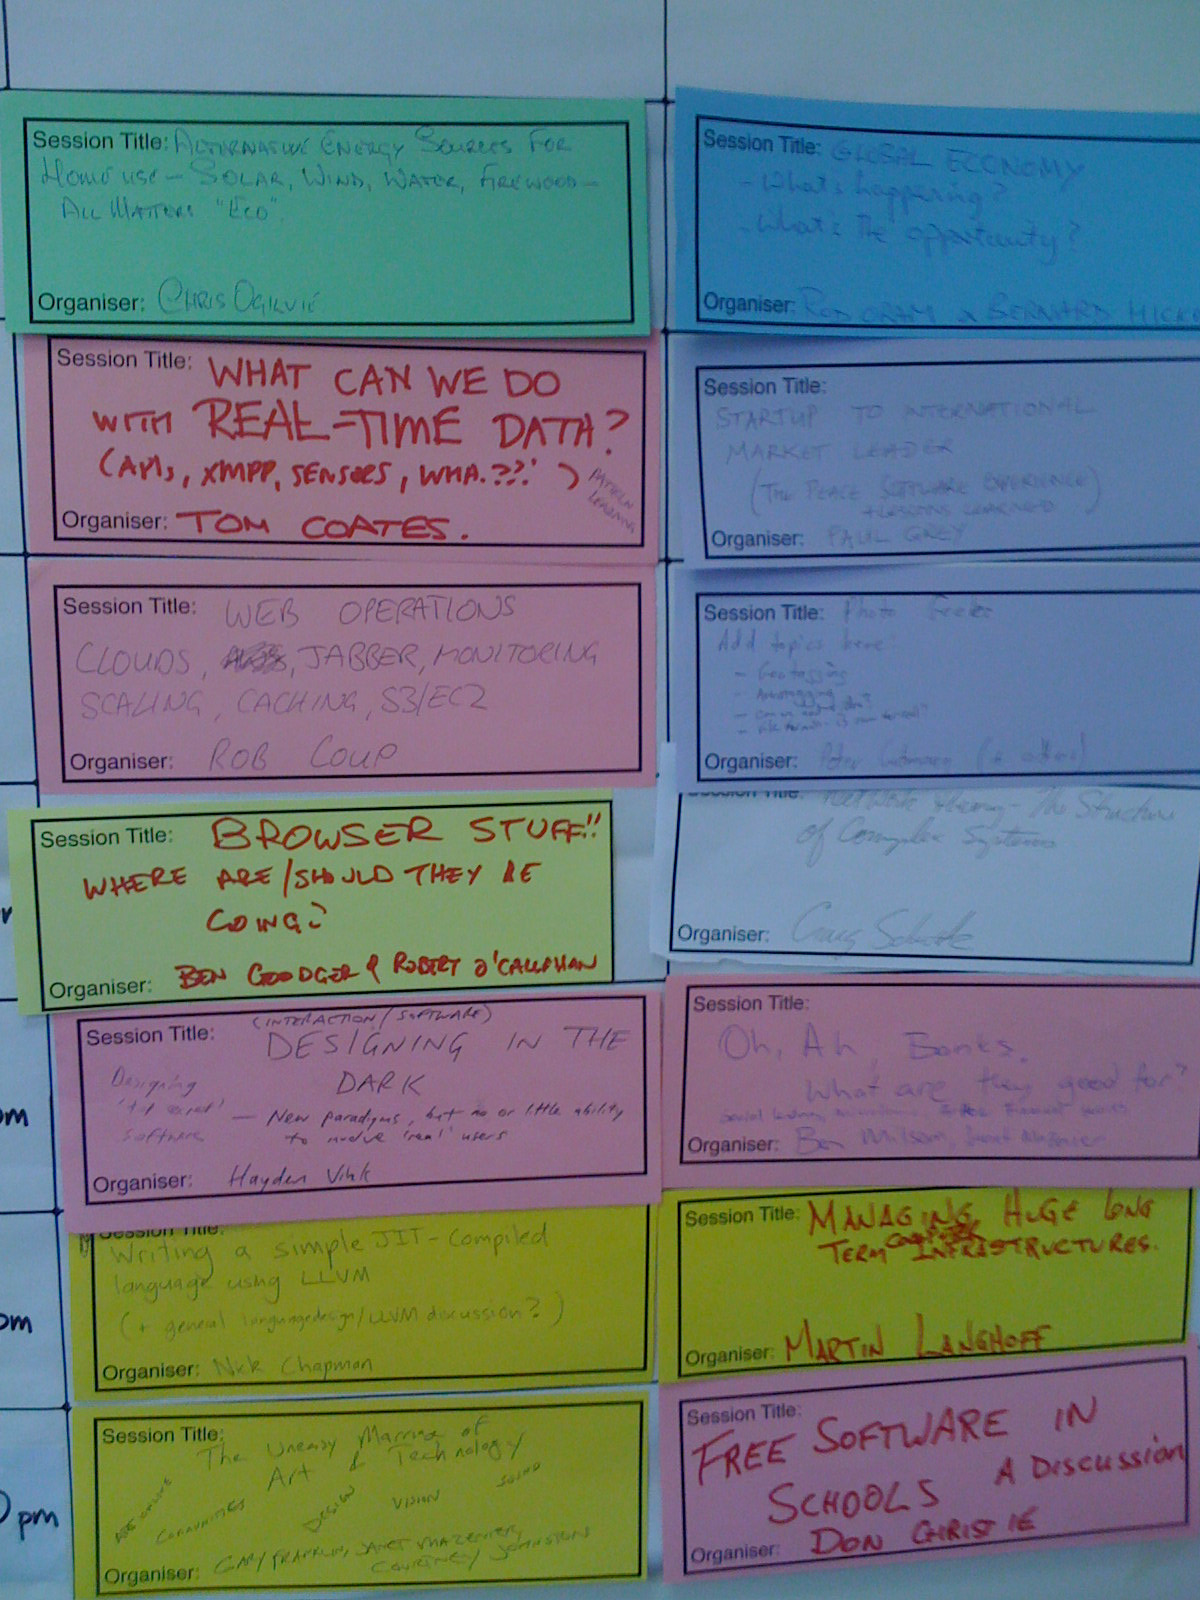 Session Title: ALTERNATIVE ENERGY SOURCES FOR
HOME USE – SOLAR, WIND, WATER, FIREWOOD –
ALL MATTERS "ECO".
Organiser: CHRIS OGILVIE
Session Title: WHAT CAN WE DO
WITH REAL-TIME DATA?
(APIs, XMPP, SENSORS, WHA.??!)
Organiser: TOM COATES.
Session Title: WEB OPERATIONS
CLOUDS, JABBER, MONITORING
SCALING, CACHING, S3/EC2
Organiser: ROB COUP
Session Title: BROWSER STUFF!!
WHERE ARE/SHOULD THEY BE
GOING?
Organiser: BEN GOODGER & ROBERT O'CALLAHAN
Session Title: (INTERACTION/SOFTWARE)
DESIGNING IN THE
DARK
Designing
software
– New paradigms, but no or little ability
to involve 'real' users
Organiser: Hayden Vink
pm
Session Title:
Writing a simple JIT-Compiled
language using LLVM
(+ general language design/LLVM discussion?)
Organiser: Nick Chapman
pm
Session Title: The Uneasy Marriage of
Art & Technology
COMMUNITIES
DESIGN
VISION
SOUND
Organiser: GARY FRANKLIN, JANET MAZENIER,
COURTNEY JOHNSTON
pm
Session Title: GLOBAL ECONOMY
- What's happening?
- What's the opportunity?
Organiser: ROD ORAM & BERNARD HICK
Session Title:
STARTUP TO INTERNATIONAL
MARKET LEADER
(THE PEACE SOFTWARE EXPERIENCE)
+ LESSONS LEARNED
Organiser: PAUL GREY
Session Title: Photo Geeks
Add topics here:
- Geotagging
- Autotagging
Organiser: Peter (+ others)
Session Title: Network theory The Structure
of Complex Systems
Organiser: Craig
Session Title:
Oh, Ah, Banks.
What are they good for?
Organiser: Ben Milsom, Janet Mazenier
Session Title: MANAGING HUGE LONG
TERM INFRASTRUCTURES.
Organiser: MARTIN LANGHOFF
Session Title:
FREE SOFTWARE IN
SCHOOLS A DISCUSSION
Organiser: DON CHRISTIE